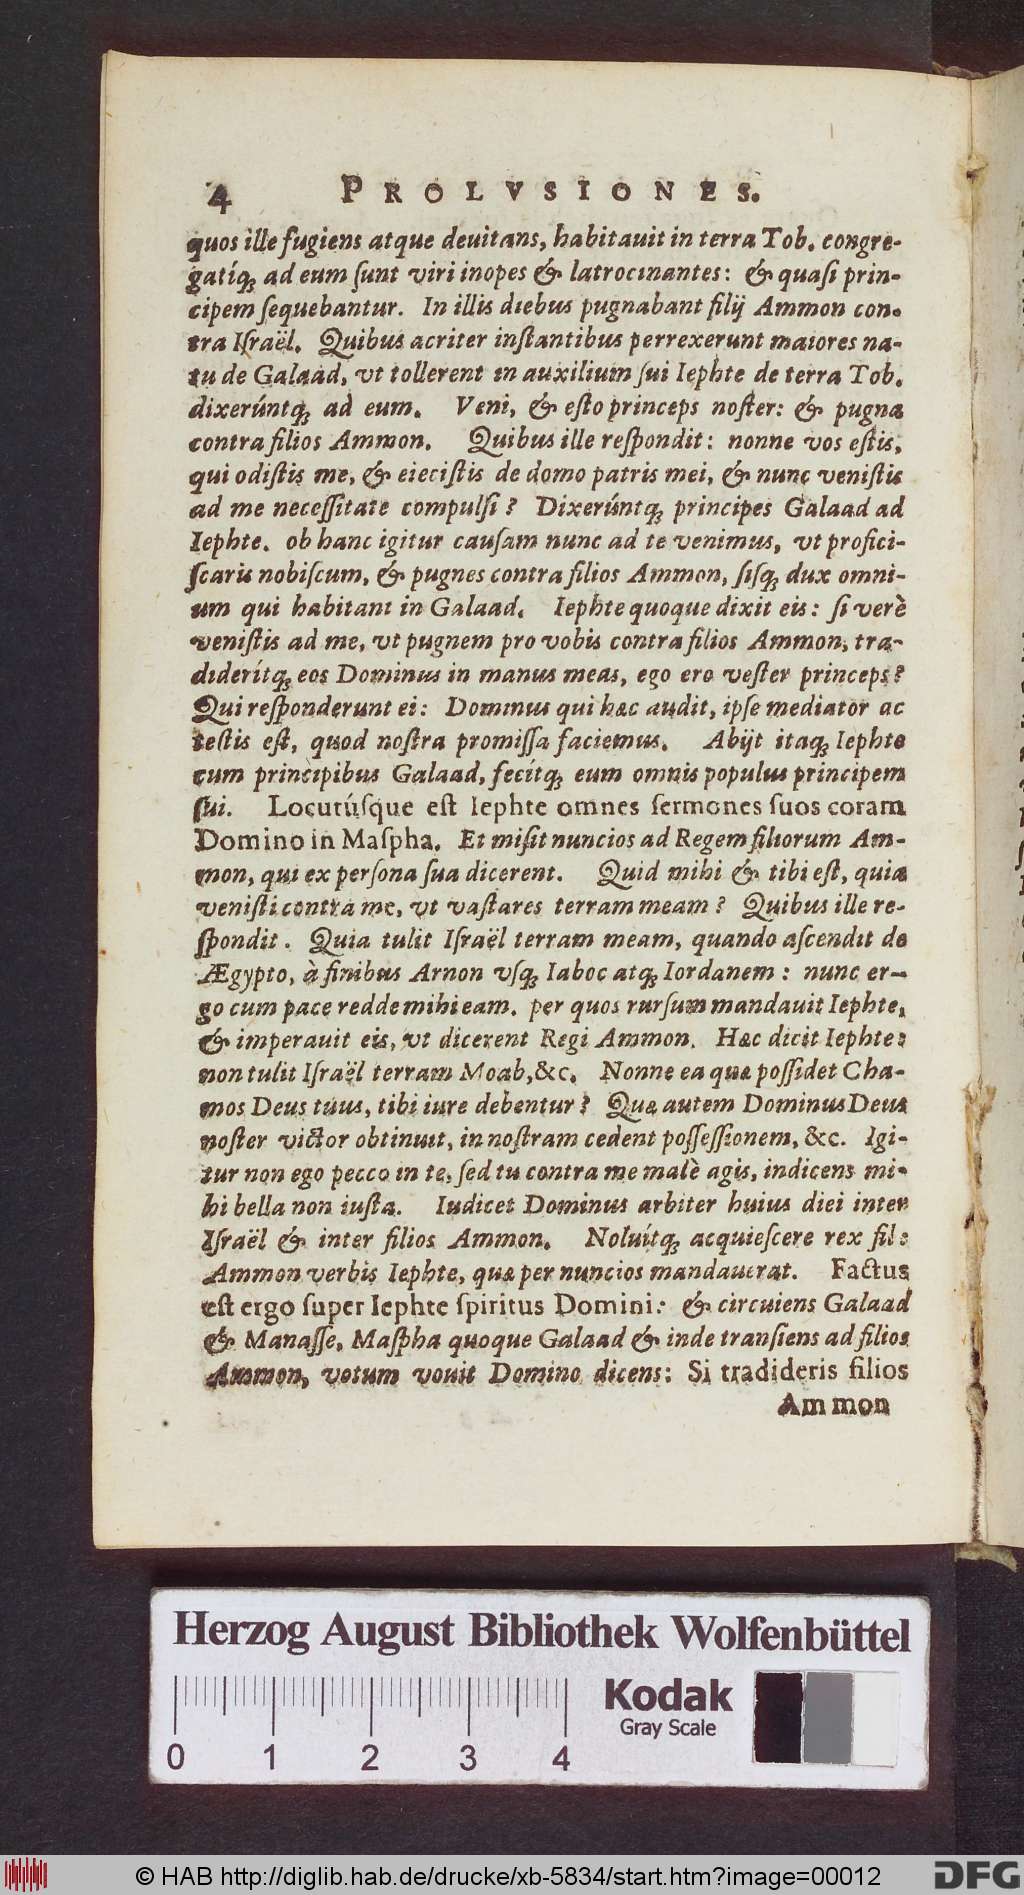 4 PROLVSIONES.
quos ille fugiens atque devitans, habitavit in terra Tob. congre-
gatíq; ad eum ſunt viri inopes & latrocinantes: & quaſi prin-
cipem ſequebantur. In illis diebus pugnabant filij Ammon con-
tra Iſraël. Quibus acriter inſtantibus perrexerunt maiores na-
tu de Galaad, vt tollerent in auxilium ſui Iephte de terra Tob.
dixerúntq; ad eum. Veni, & eſto princeps noſter: & pugna
contra filios Ammon. Quibus ille reſpondit: nonne vos eſtis,
qui odiſtis me, & eieciſtis de domo patris mei, & nunc veniſtis
ad me neceſſitate compulſi? Dixerúntq; principes Galaad ad
Iephte. ob hanc igitur cauſam nunc ad te venimus, vt profici-
ſcaris nobiſcum, & pugnes contra filios Ammon, ſiſq; dux omni-
um qui habitant in Galaad. Iephte quoque dixit eis: ſi verè
veniſtis ad me, vt pugnem pro vobis contra filios Ammon, tra-
diderítq; eos Dominus in manus meas, ego ero veſter princeps?
Qui reſponderunt ei: Dominus qui hæc audit, ipſe mediator ac
teſtis eſt, quod noſtra promiſſa faciemus. Abijt itaq; Iephte
cum principibus Galaad, fecítq; eum omnis populus principem
ſui. Locutúſque eſt Iephte omnes ſermones ſuos coram
Domino in Maſpha. Et miſit nuncios ad Regem filiorum Am-
mon, qui ex perſona ſua dicerent. Quid mihi & tibi eſt, quia
veniſti contra me, vt vaſtares terram meam? Quibus ille re-
ſpondit. Quia tulit Iſraël terram meam, quando aſcendit de
Ægypto, à finibus Arnon vſq; Iaboc atq; Iordanem: nunc er-
go cum pace redde mihi eam. per quos rurſum mandavit Iephte,
& imperavit eis, vt dicerent Regi Ammon. Hæc dicit Iephte:
non tulit Iſraël terram Moab, &c. Nonne ea quæ poſſidet Cha-
mos Deus tuus, tibi iure debentur? Quæ autem Dominus Deus
noſter victor obtinuit, in noſtram cedent poſſeſſionem, &c. Igi-
tur non ego pecco in te, ſed tu contra me malè agis, indicens mi-
hi bella non iuſta. Iudicet Dominus arbiter huius diei inter
Iſraël & inter filios Ammon. Noluítq; acquieſcere rex fil:
Ammon verbis Iephte, quæ per nuncios mandauerat. Factus
eſt ergo ſuper Iephte ſpiritus Domini: & circuiens Galaad
& Manaſſe, Maſpha quoque Galaad & inde tranſiens ad filios
Ammon, votum vovit Domino dicens: Si tradideris filios
Ammon
Herzog August Bibliothek Wolfenbüttel
Kodak
Gray Scale
0 1 2 3 4
© HAB http://diglib.hab.de/drucke/xb-5834/start.htm?image=00012
DFG